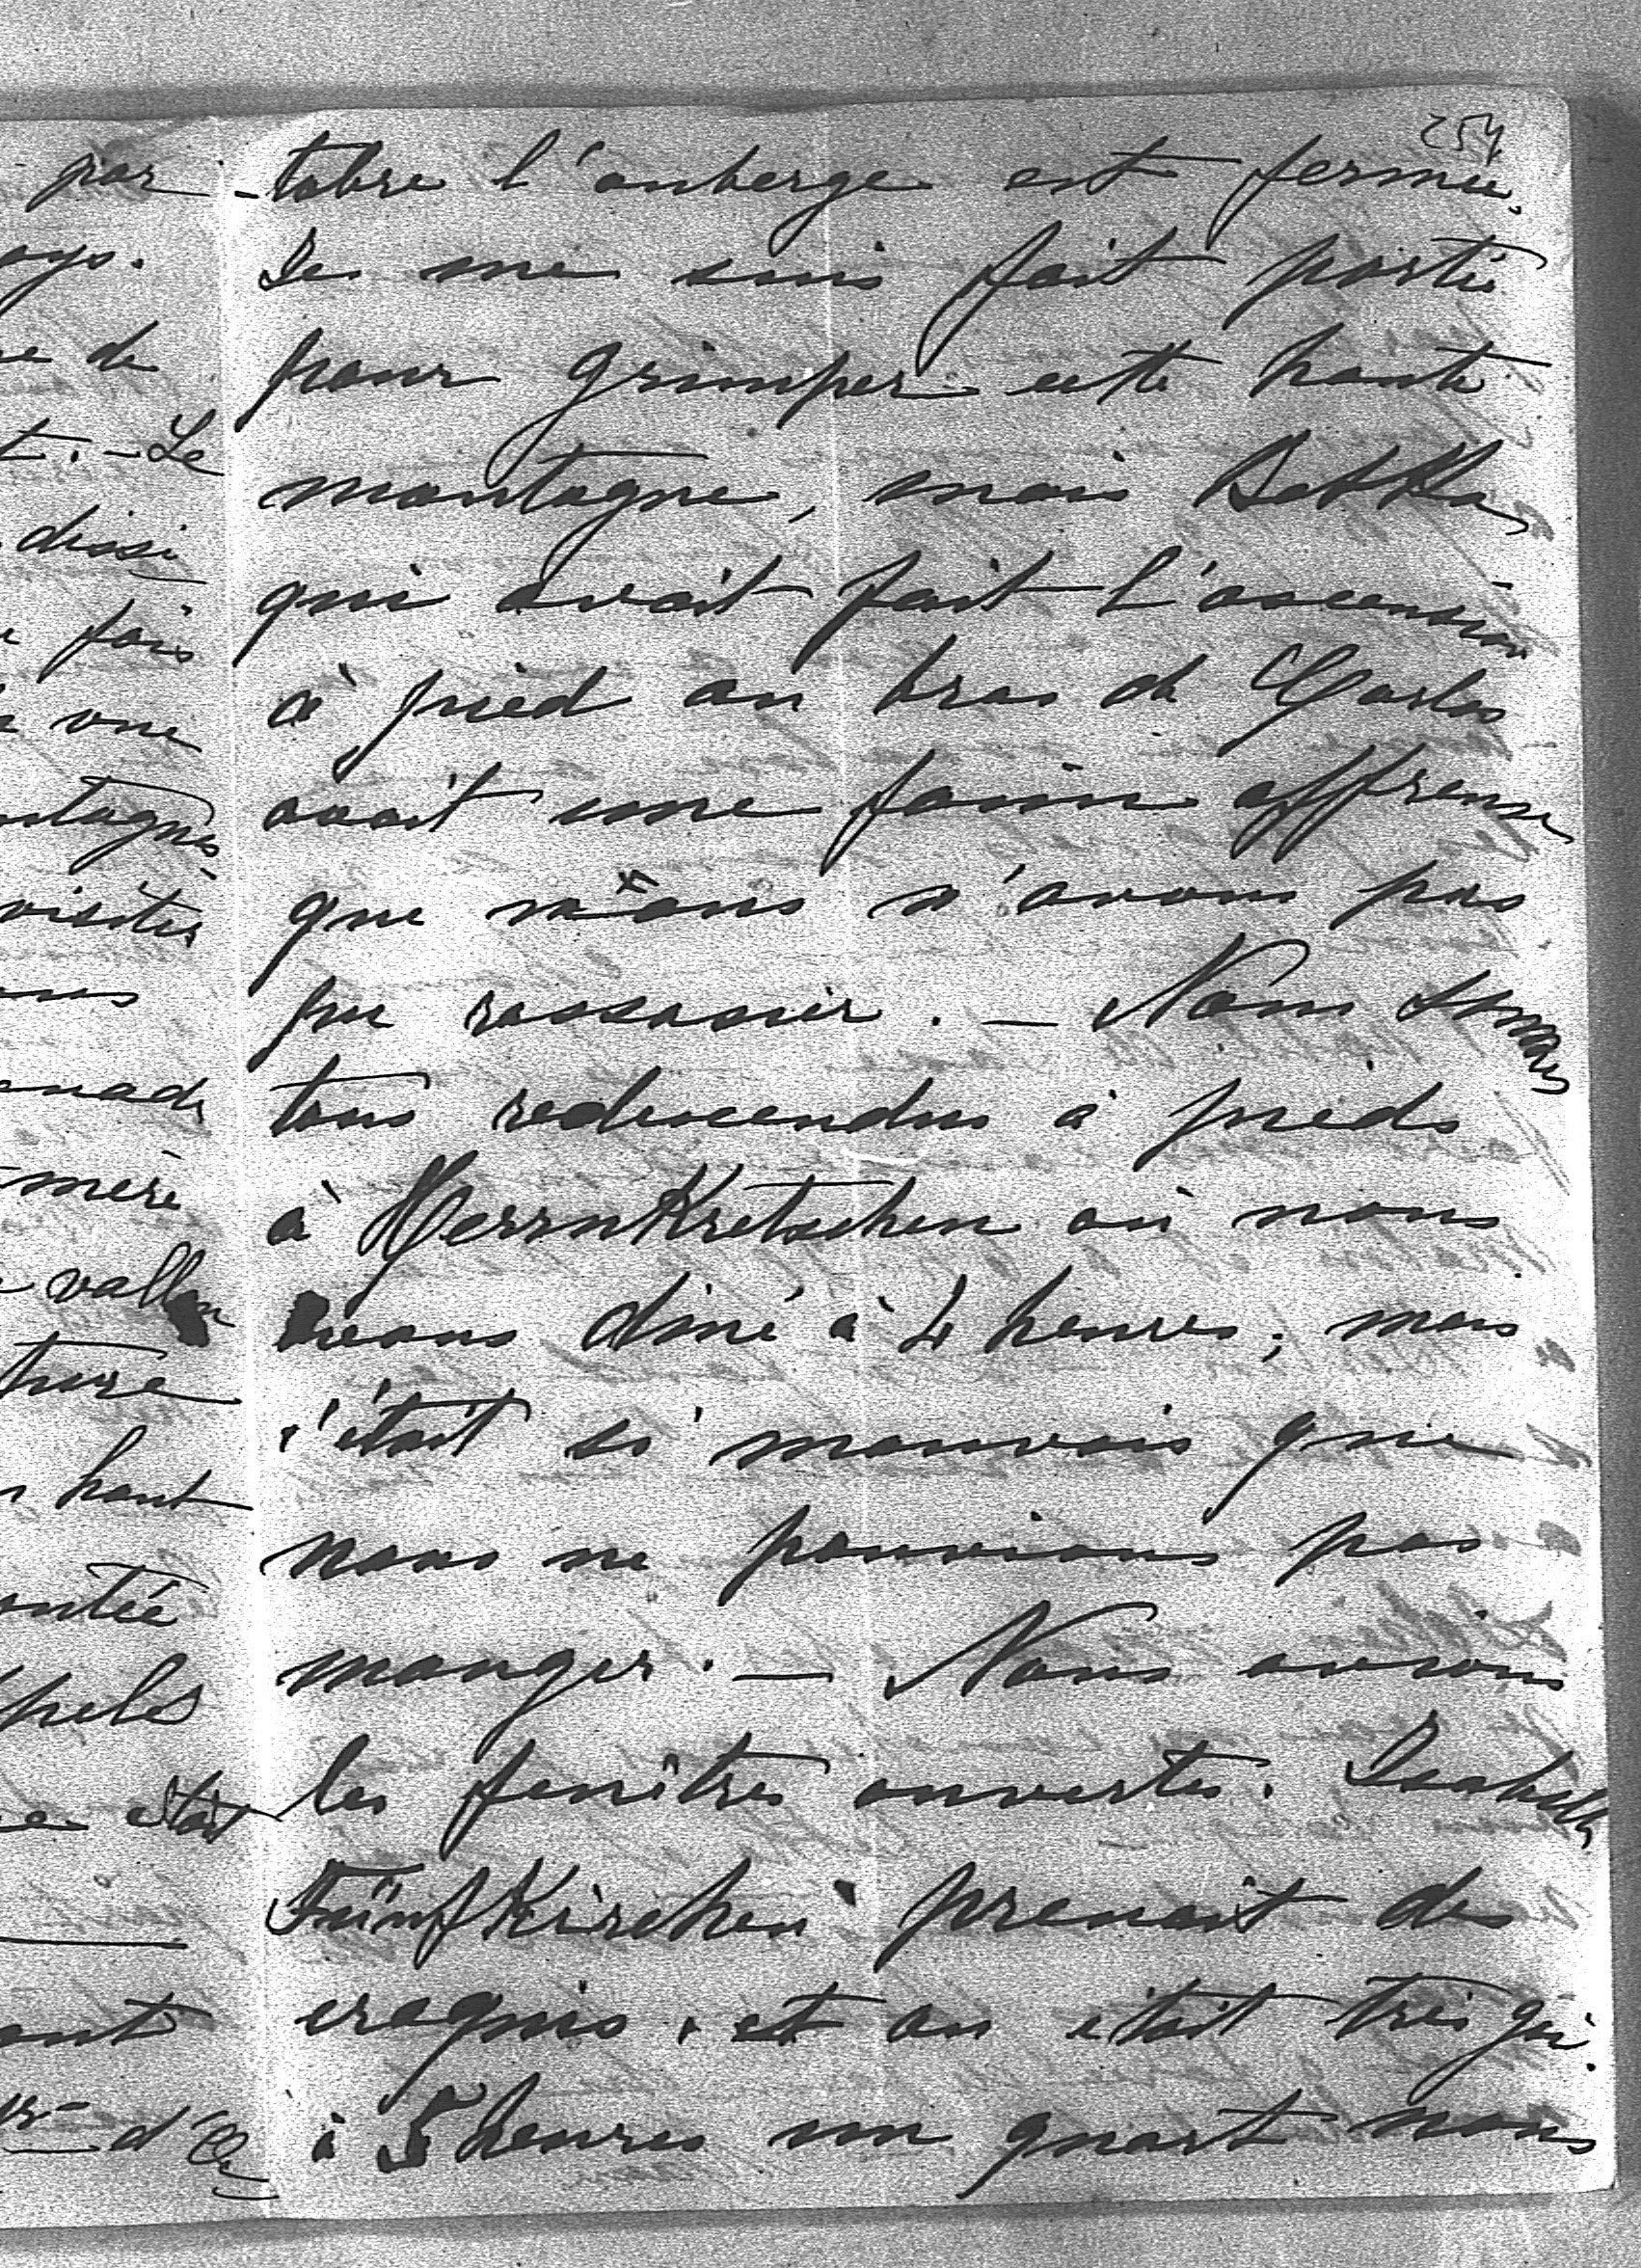 254
par
-tobre l'auberge est fermée.
Je me suis fait porté
pour grimper cette haute
montagne, mais Bekka
qui avait fait l'ascension
à pied au bras de Carlos
avait une faim affreuse
que nous n'avons pas
pu rassasier. — Nous sommes
tous redescendus à pieds
à HerrnKretschen où nous
avons diné à 4 heures; mais
c'était si mauvais que
nous ne pouvions pas
manger. — Nous avions
les fenêtres ouvertes. Isabelle
FünfKirchen prenait des
croquis, et on était très gai.
à 5 heures un quart nous
de
t. - Le
dissi
fois
vue
ntagnes
visiter
mère
vallon
haut
était
d'Oc